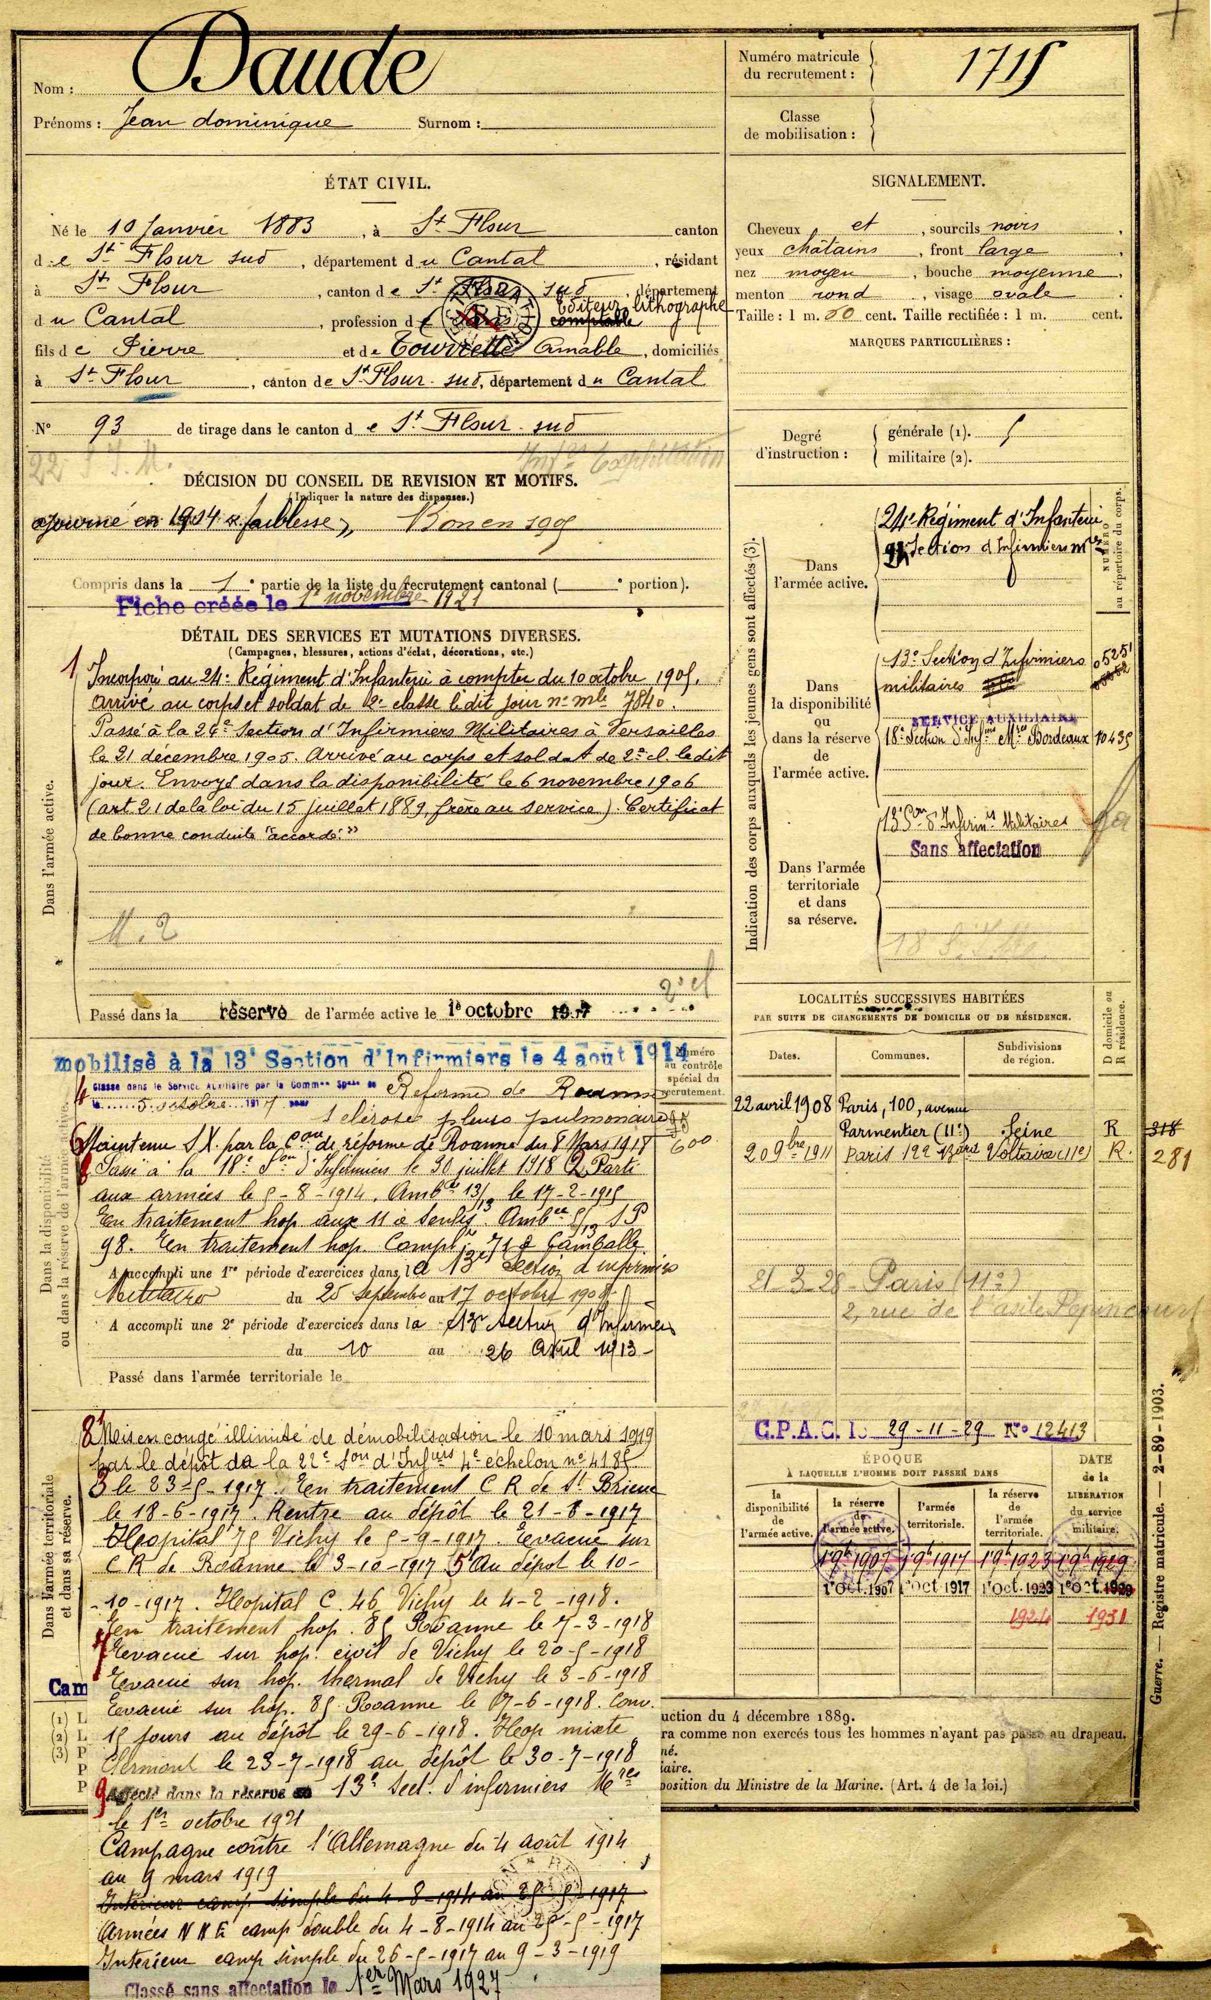 Nom : Daude
Prénoms : Jean dominique Surnom :
ÉTAT CIVIL.
Né le 10 Janvier 1883, à St Flour canton
de St Flour sud, département du Cantal, résidant
à St Flour, canton de St Flour sud, département
du Cantal, profession de comptable Editeur lithographe
fils de Pierre et de Tourrette Amable, domiciliés
à St Flour, canton de St Flour sud, département du Cantal
N° 93 de tirage dans le canton de St Flour sud
22
DÉCISION DU CONSEIL DE REVISION ET MOTIFS.
(Indiquer la nature des dispenses.)
ajourné en 1904 « faiblesse », Bon en 1905
Compris dans la 1e partie de la liste du recrutement cantonal ( e portion).
Fiche créée le 1er novembre 1921
DÉTAIL DES SERVICES ET MUTATIONS DIVERSES.
(Campagnes, blessures, actions d'éclat, décorations, etc.)
Dans l'armée active.
1 Incorporé au 24e Régiment d'Infanterie à compter du 10 octobre 1905.
Arrivé au corps et soldat de 2e classe le dit jour no mle 7840.
Passé à la 24e Section d'Infirmiers Militaires à Versailles
le 21 décembre 1905. Arrivé au corps et soldat de 2e cl. le dit
jour. Envoyé dans la disponibilité le 6 novembre 1906
(art 21 de la loi du 15 juillet 1889, frère au service). Certificat
de bonne conduite "accordé."
M. 2
2e cl
Passé dans la réserve de l'armée active le 1e octobre 1907
Dans la disponibilité
ou dans la réserve de l'armée active.
mobilisé à la 13e Section d'Infirmiers le 4 août 1914
Numéro
au contrôle
spécial du
recrutement.
600
4 Classé dans le Service Auxiliaire par la Common Spéle de Réforme de Roanne
le 5 octobre 1917 pour
sclérose pleuro pulmonaire
6 Maintenu S.X. par la Con de réforme de Roanne du 8 Mars 1918
8 Passé à la 18e Son d'Infirmiers le 30 juillet 1918 2 Parti
aux armées le 5-8-1914. Ambce 13/13 le 17-2-1915
En traitement hop. aux 11 à Senlis. Ambce 5/13 SP
98. En traitement hop. Complre 71 à Lamballe.
A accompli une 1re période d'exercices dans la 13e Section d'infirmiers
Militaires du 25 septembre au 17 octobre 190
A accompli une 2e période d'exercices dans la 13e Section d'Infirmiers
du 10 au 26 Avril 1913
Passé dans l'armée territoriale le
Dans l'armée territoriale
et dans sa réserve.
8 Mis en congé illimité de démobilisation le 10 mars 1919
par le dépôt de la 22e Son d'Infiers 4e échelon no 4185
3 le 23-5-1917. En traitement C R de St Brieuc
le 18-6-1917. Rentre au dépôt le 21-8-1917
Hopital 75 Vichy le 5-9-1917. Evacué sur
C R de Roanne le 3-10-1917 5 Au dépot le 10-
-10-1917. Hopital C. 46 Vichy le 4-2-1918.
En traitement hop. 85 Roanne le 7-3-1918
7 Evacué sur hop. civil de Vichy le 20-5-1918
Evacué sur hop. thermal de Vichy le 3-6-1918
Evacué sur hop. 85 Roanne le 17-6-1918. Conv.
15 jours au dépôt le 29-6-1918. Hop mixte
Clermont le 23-7-1918 au dépôt le 30-7-1918
9 Affecté dans la réserve à 13e Sect. d'infirmiers Mres
le 1er octobre 1921
Campagne contre l'Allemagne du 4 août 1914
au 9 mars 1919
Intérieur camp simple du 4-8-1914 au 25-5-1917
Armées N N E camp double du 4-8-1914 au 25-5-1917
Interieur camp simple du 26-5-1917 au 9-3-1919
Classé sans affectation le 1er Mars 1927
Cam
(1) L
(2) L
(3) P
P
P
uction du 4 décembre 1889.
ra comme non exercés tous les hommes n'ayant pas passé au drapeau.
né.
iaire.
position du Ministre de la Marine. (Art. 4 de la loi.)
Numéro matricule
du recrutement : 1715
Classe
de mobilisation :
SIGNALEMENT.
Cheveux et, sourcils noirs,
yeux châtains, front large
nez moyen, bouche moyenne,
menton rond, visage ovale.
Taille : 1 m. 60 cent. Taille rectifiée : 1 m. cent.
MARQUES PARTICULIÈRES :
Degré
d'instruction :
générale (1).
militaire (2).
Indication des corps auxquels les jeunes gens sont affectés (3).
NUMÉRO
au répertoire du corps.
Dans
l'armée active.
24e Régiment d'Infanterie
24e Section d'Infirmiers mres
Dans
la disponibilité
ou
dans la réserve
de
l'armée active.
13e Section d'Infirmiers
militaires
05251
SERVICE AUXILIAIRE
18e Section d'Infrs Mres Bordeaux 10435
Dans l'armée
territoriale
et dans
sa réserve.
13 Son d'Infirmrs Militaires
Sans affectation
LOCALITÉS SUCCESSIVES HABITÉES
PAR SUITE DE CHANGEMENTS DE DOMICILE OU DE RÉSIDENCE.
D domicile ou
R résidence.
Dates.
Communes.
Subdivisions
de région.
22 avril 1908 Paris, 100, avenue
Parmentier (11e) Seine R 318
20 9bre 1911 Paris 122 Bard Voltaire (11e) R. 281
21-3-28 Paris (11e)
2, rue de l'asile Popincourt
C.P.A.C. Le 29-11-29 No 12413
ÉPOQUE
À LAQUELLE L'HOMME DOIT PASSER DANS
DATE
de la
LIBÉRATION
du service
militaire.
la
disponibilité
de
l'armée active.
la réserve
de
l'armée active.
l'armée
territoriale.
la réserve
de
l'armée
territoriale.
1 9b 1907 1 9b 1917 1 9b 1923 1 9b 1929
1e Oct. 1907 1e Oct 1917 1e Oct. 1923 1e Oct. 1929
1924 1931
Guerre. — Registre matricule. — 2-89-1903.